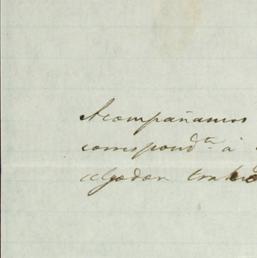 Acompañamos
correspond.te á
algodon